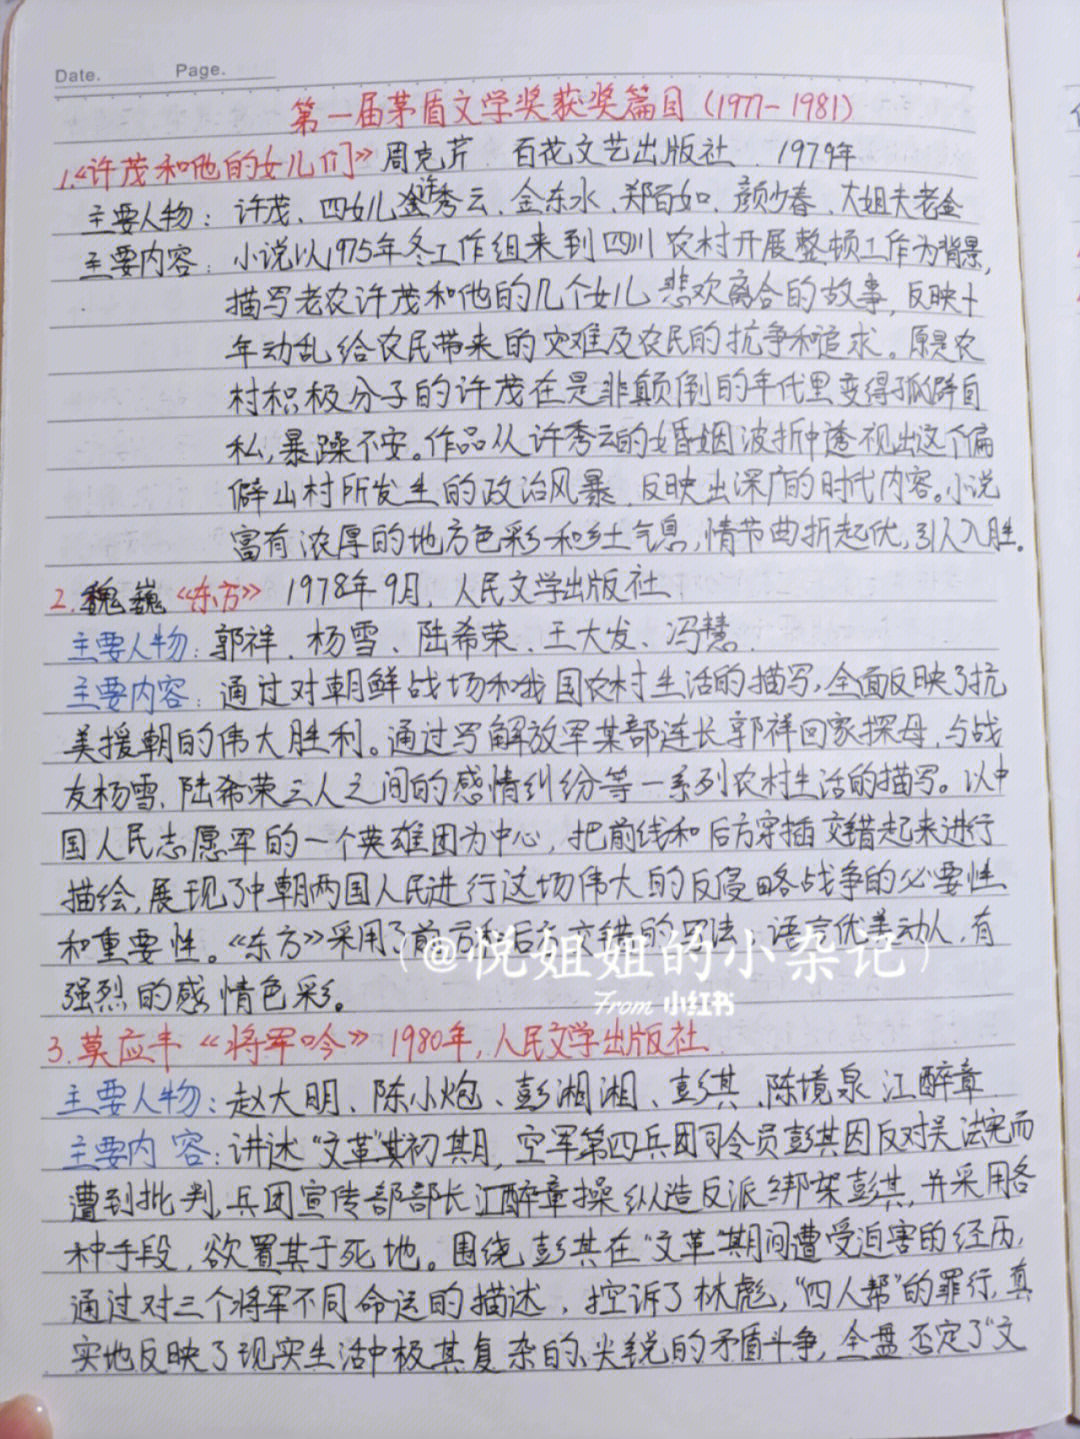 Date. Page.
第一届茅盾文学奖获奖篇目(1977-1981)
1.《许茂和他的女儿们》周克芹 百花文艺出版社 1979年
主要人物：许茂、四女儿许秀云、金东水、郑百如、颜少春、大姐夫老金
主要内容：小说以1975年冬工作组来到四川农村开展整顿工作为背景,
描写老农许茂和他的几个女儿悲欢离合的故事,反映十
年动乱给农民带来的灾难及农民的抗争和追求。原是农
村积极分子的许茂在是非颠倒的年代里变得孤僻自
私,暴躁不安。作品从许秀云的婚姻波折中透视出这个偏
僻山村所发生的政治风暴,反映出深广的时代内容。小说
富有浓厚的地方色彩和乡土气息,情节曲折起伏,引人入胜。
2.魏巍《东方》1978年9月,人民文学出版社
主要人物：郭祥、杨雪、陆希荣、王大发、冯慧.
主要内容：通过对朝鲜战场和我国农村生活的描写,全面反映了抗
美援朝的伟大胜利。通过写解放军某部连长郭祥回家探母,与战
友杨雪、陆希荣三人之间的感情纠纷等一系列农村生活的描写。以中
国人民志愿军的一个英雄团为中心,把前线和后方穿插交错起来进行
描绘,展现了中朝两国人民进行这场伟大的反侵略战争的必要性
和重要性。《东方》采用了前方和后方交错的写法,语言优美动人,有
(@悦姐姐的小杂记)
强烈的感情色彩。
From 小红书
3.莫应丰《将军吟》1980年,人民文学出版社.
主要人物：赵大明、陈小炮、彭湘湘、彭其、陈境泉 江醉章
主要内容：讲述"文革"其初期,空军第四兵团司令员彭其因反对吴法宪而
遭到批判,兵团宣传部部长江醉章操纵造反派绑架彭其,并采用各
种手段,欲置其于死地。围绕彭其在"文革"期间遭受迫害的经历,
通过对三个将军不同命运的描述,控诉了林彪,"四人帮"的罪行,真
实地反映了现实生活中极其复杂的、尖锐的矛盾斗争,全盘否定了"文